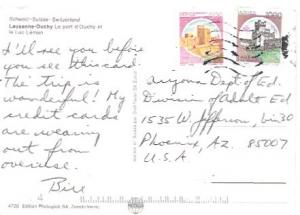 Schweiz-Suisse-Switzerland
Lausanne-Ouchy Le port d'Ouchy et
le Lac Léman
I'll see you before
you see this card.
The trip is
wonderful! My
credit cards
are wearing
out from
overuse.
Bill
Arizona Dept of Ed.
Division of Adult Ed
1535 W. Jefferson, bin 30
Phoenix, AZ. 85007
U.S.A